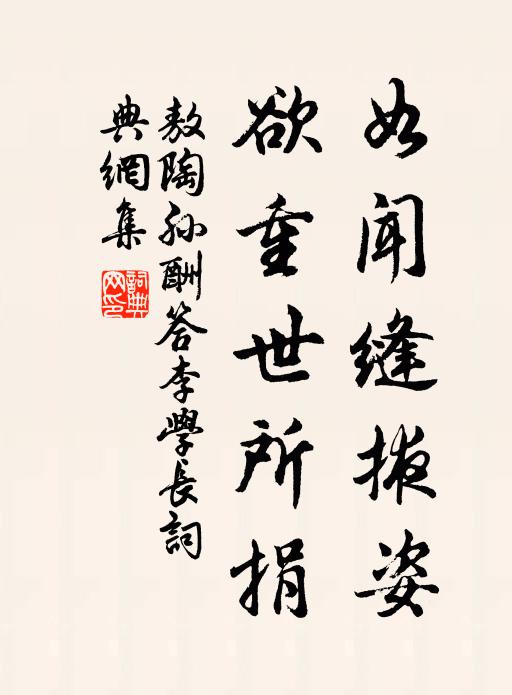 如闻缝掖姿
欲重世所捐
敖陶孙酬答李學長詞
典網集
詞典
网印